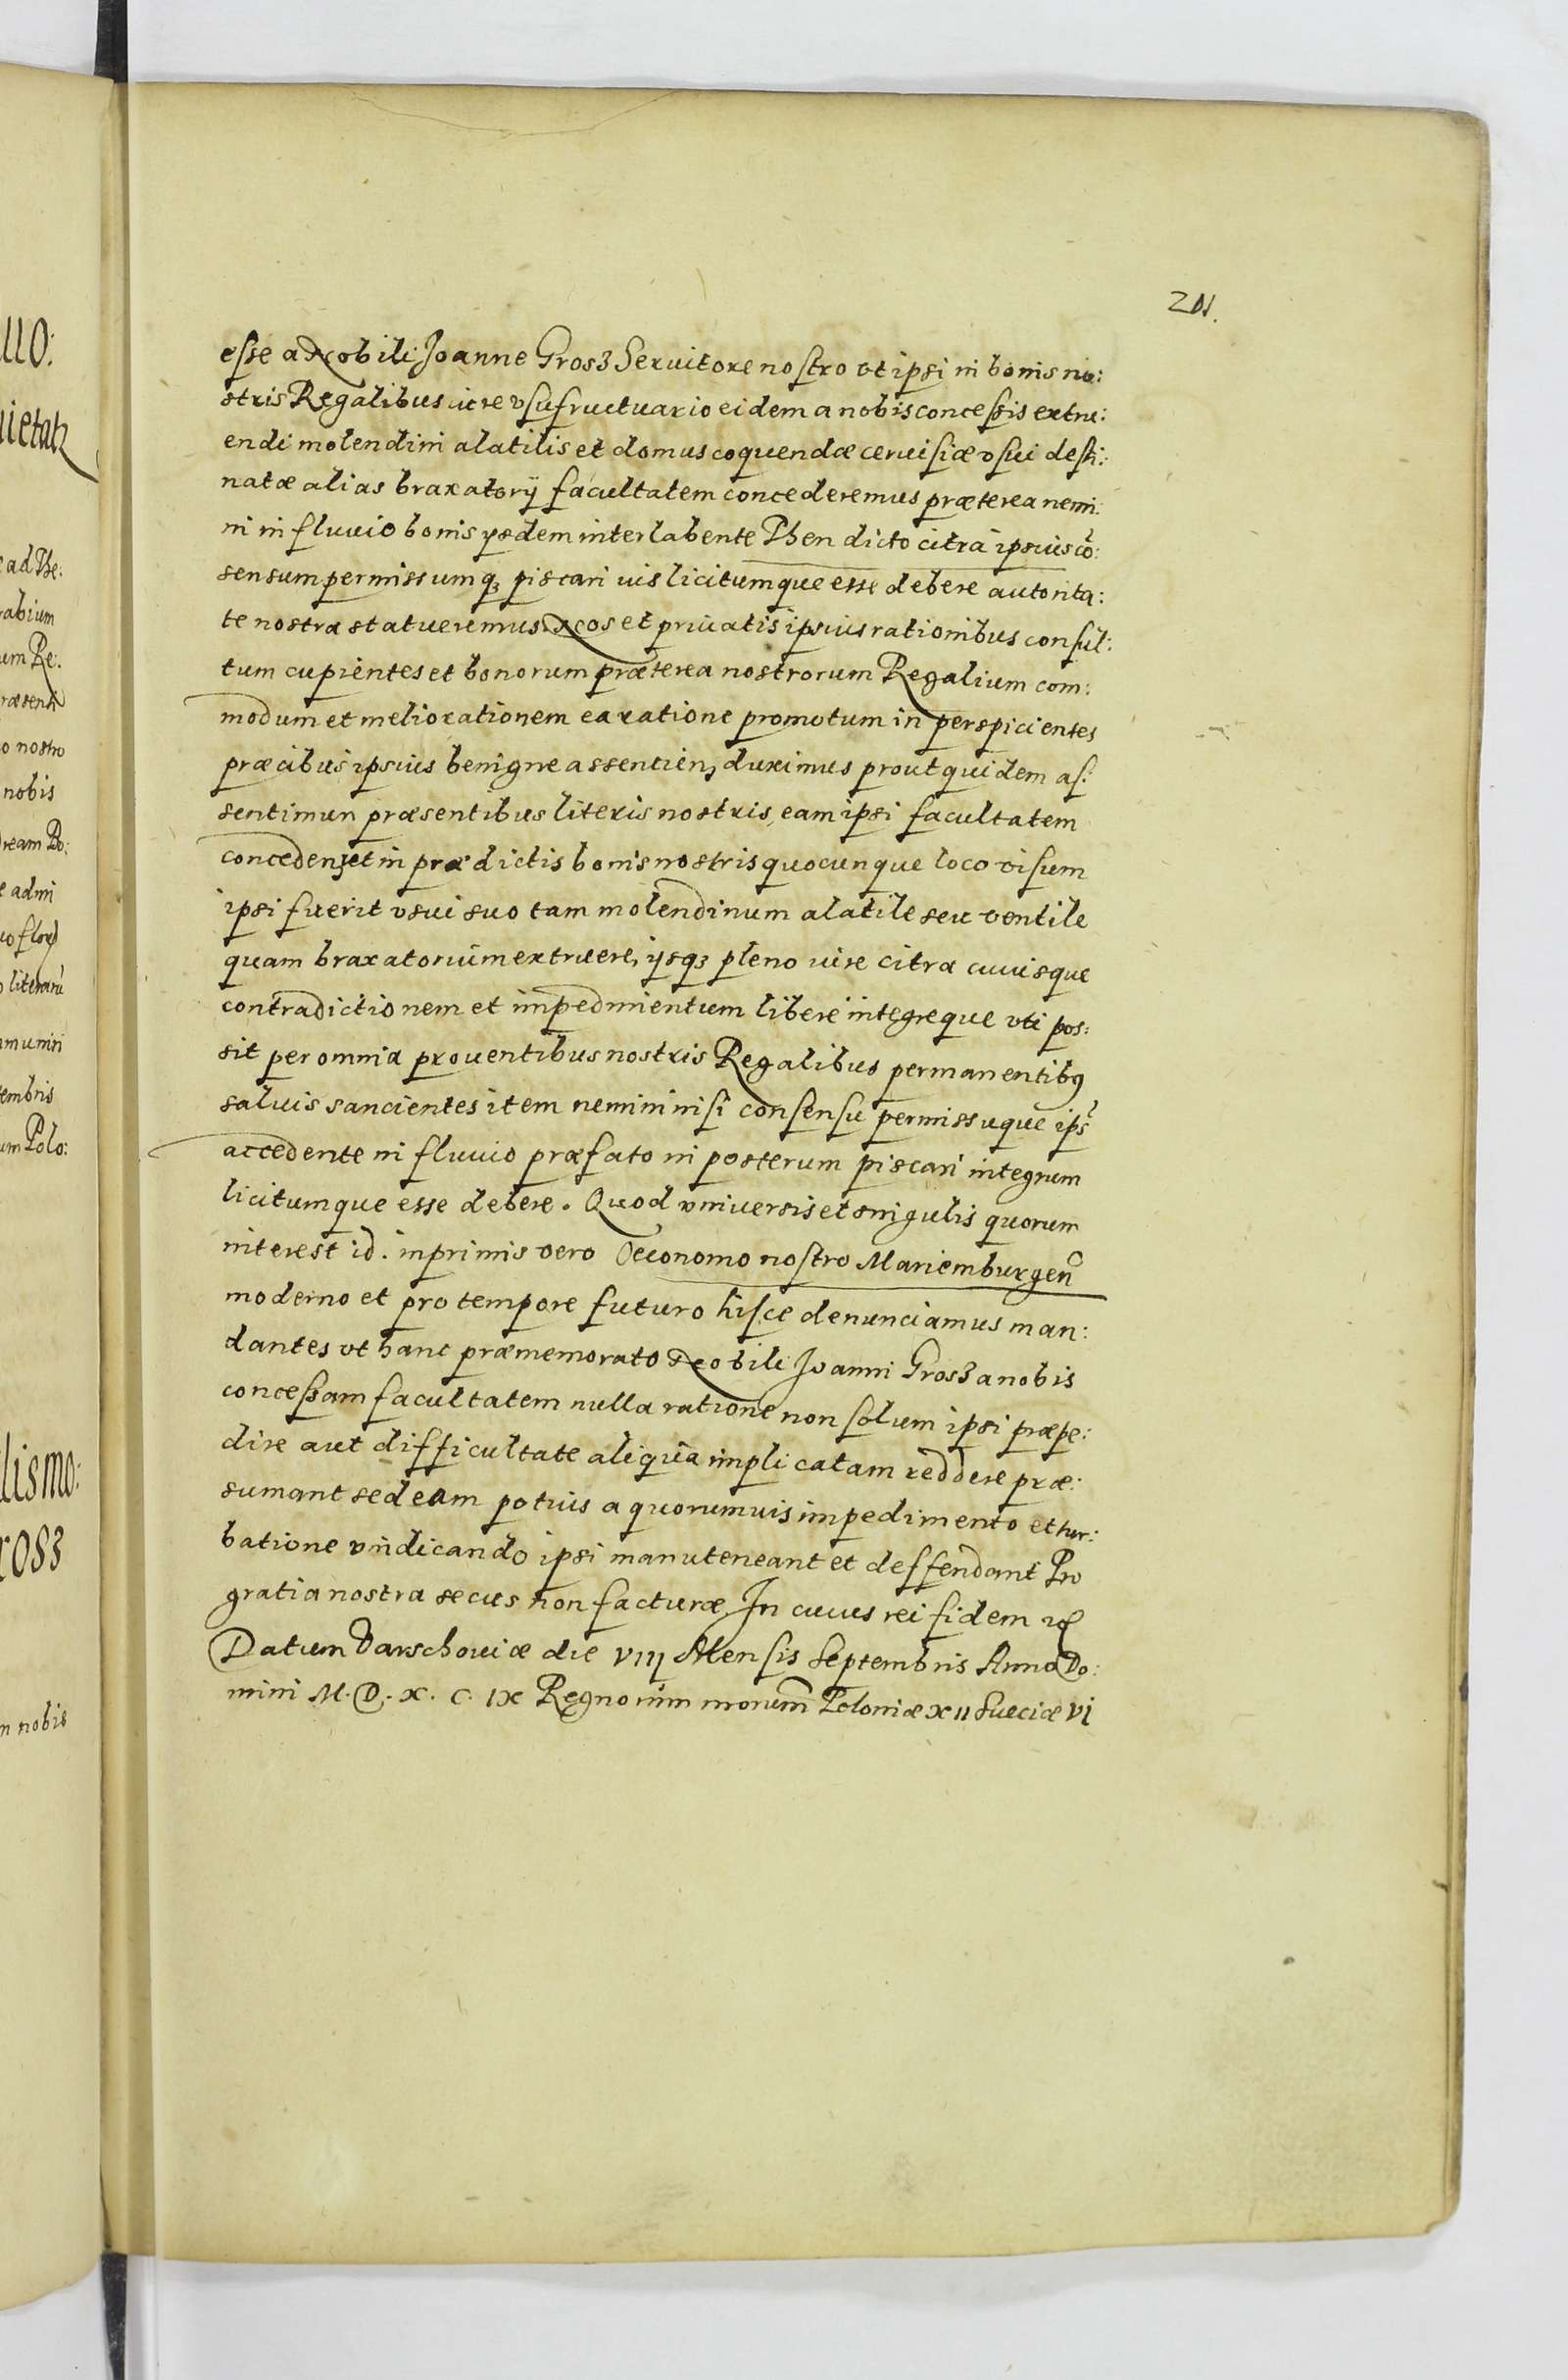 201.
esse a Nobili Joanne Grosz Seruitore nostro vt ipsi in bonis no:
stris Regalibus iure vsufructuario eidem a nobis concessis extru:
endi molendini alatilis et domus coquendæ ceruisiæ vsui desti:
natæ alias braxatorij facultatem concederemus præterea nemi:
ni in fluuio bonis ysdem interlabente Then dicto citra ipsius cō:
sensum permissumq3 piscari ius licitumque esse debere autorita:
te nostra statueremus. Nos et priuatis ipsius rationibus consul:
tum cupientes et bonorum præterea nostrorum Regalium com:
modum et meliorationem ea ratione promotum in perspicientes
præcibus ipsius benigne assentien, duximus prout quidem as:
sentimur præsentibus literis nostris, eam ipsi facultatem
conceden, et in prædictis bonis nostris quocunque loco visum
ipsi fuerit vsui suo tam molendinum alatile seu ventile
quam braxatorium extruere, ijsq3 pleno iure citra cuiusque
contradictionem et impedimentum libere integreque vti pos:
sit per omnia prouentibus nostris Regalibus permanentibus
saluis sancientes item nemini nisi consensu permissuque ips
accedente in fluuio præfato in posterum piscari integrum
licitumque esse debere. Quod vniuersis et singulis quorum
interest id. inprimis vero Oeconomo nostro Mariemburgen
moderno et pro tempore futuro hisce denunciamus man:
dantes vt hanc præmemorato Nobili Joanni Grosz a nobis
concessam facultatem nulla ratione non solum ipsi præpe:
dire aut difficultate aliqua implicatam reddere præ:
sumant sed eam potius a quorumuis impedimento et tur:
batione vindicando ipsi manuteneant et deffendant Pro
gratia nostra secus non facturæ. In cuius rei fidem
Datum Varschouiæ die VIII Mensis Septembris Anno Do:
mini M. D. X. C. IX Regnorum nrorum Poloniæ XII Sueciæ VI
llo:
uietatz
ad The:
rabium
um Re:
ræsenti
o nostro
nobis
dream Bo:
e admi
literaru
mmuniri
tembris
um Polo:
lismo:
rosz
m nobis